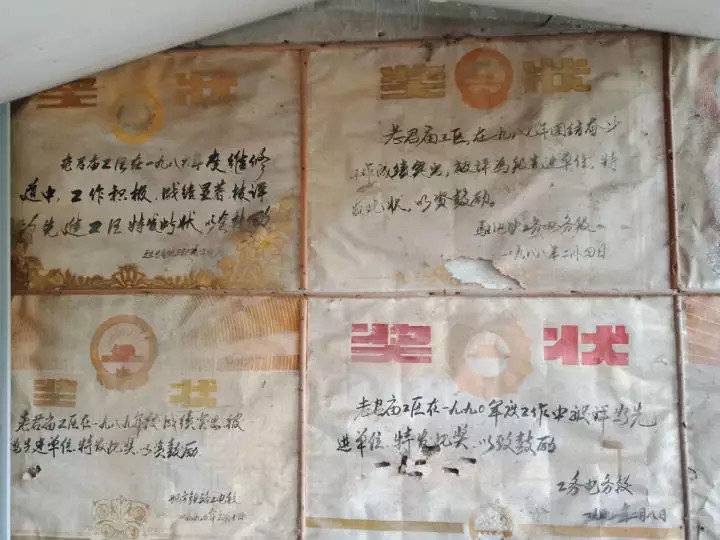 奖 状
老君庙工区在一九八七年度维修
道中，工作积极，成绩显著被评
为先进工区特发此状，以资鼓励
奖 状
老君庙工区，在一九八七年团结奋
工作成绩突出，被评为先进单位，特
发此状，以资鼓励。
工务电务段
一九八八年二月四日
奖 状
老君庙工区在一九八九年度成绩突出被
为先进单位，特发此奖，以资鼓励
奖 状
老君庙工区在一九九〇年度工作中被评为先
进单位，特发此奖，以致鼓励
工务电务段